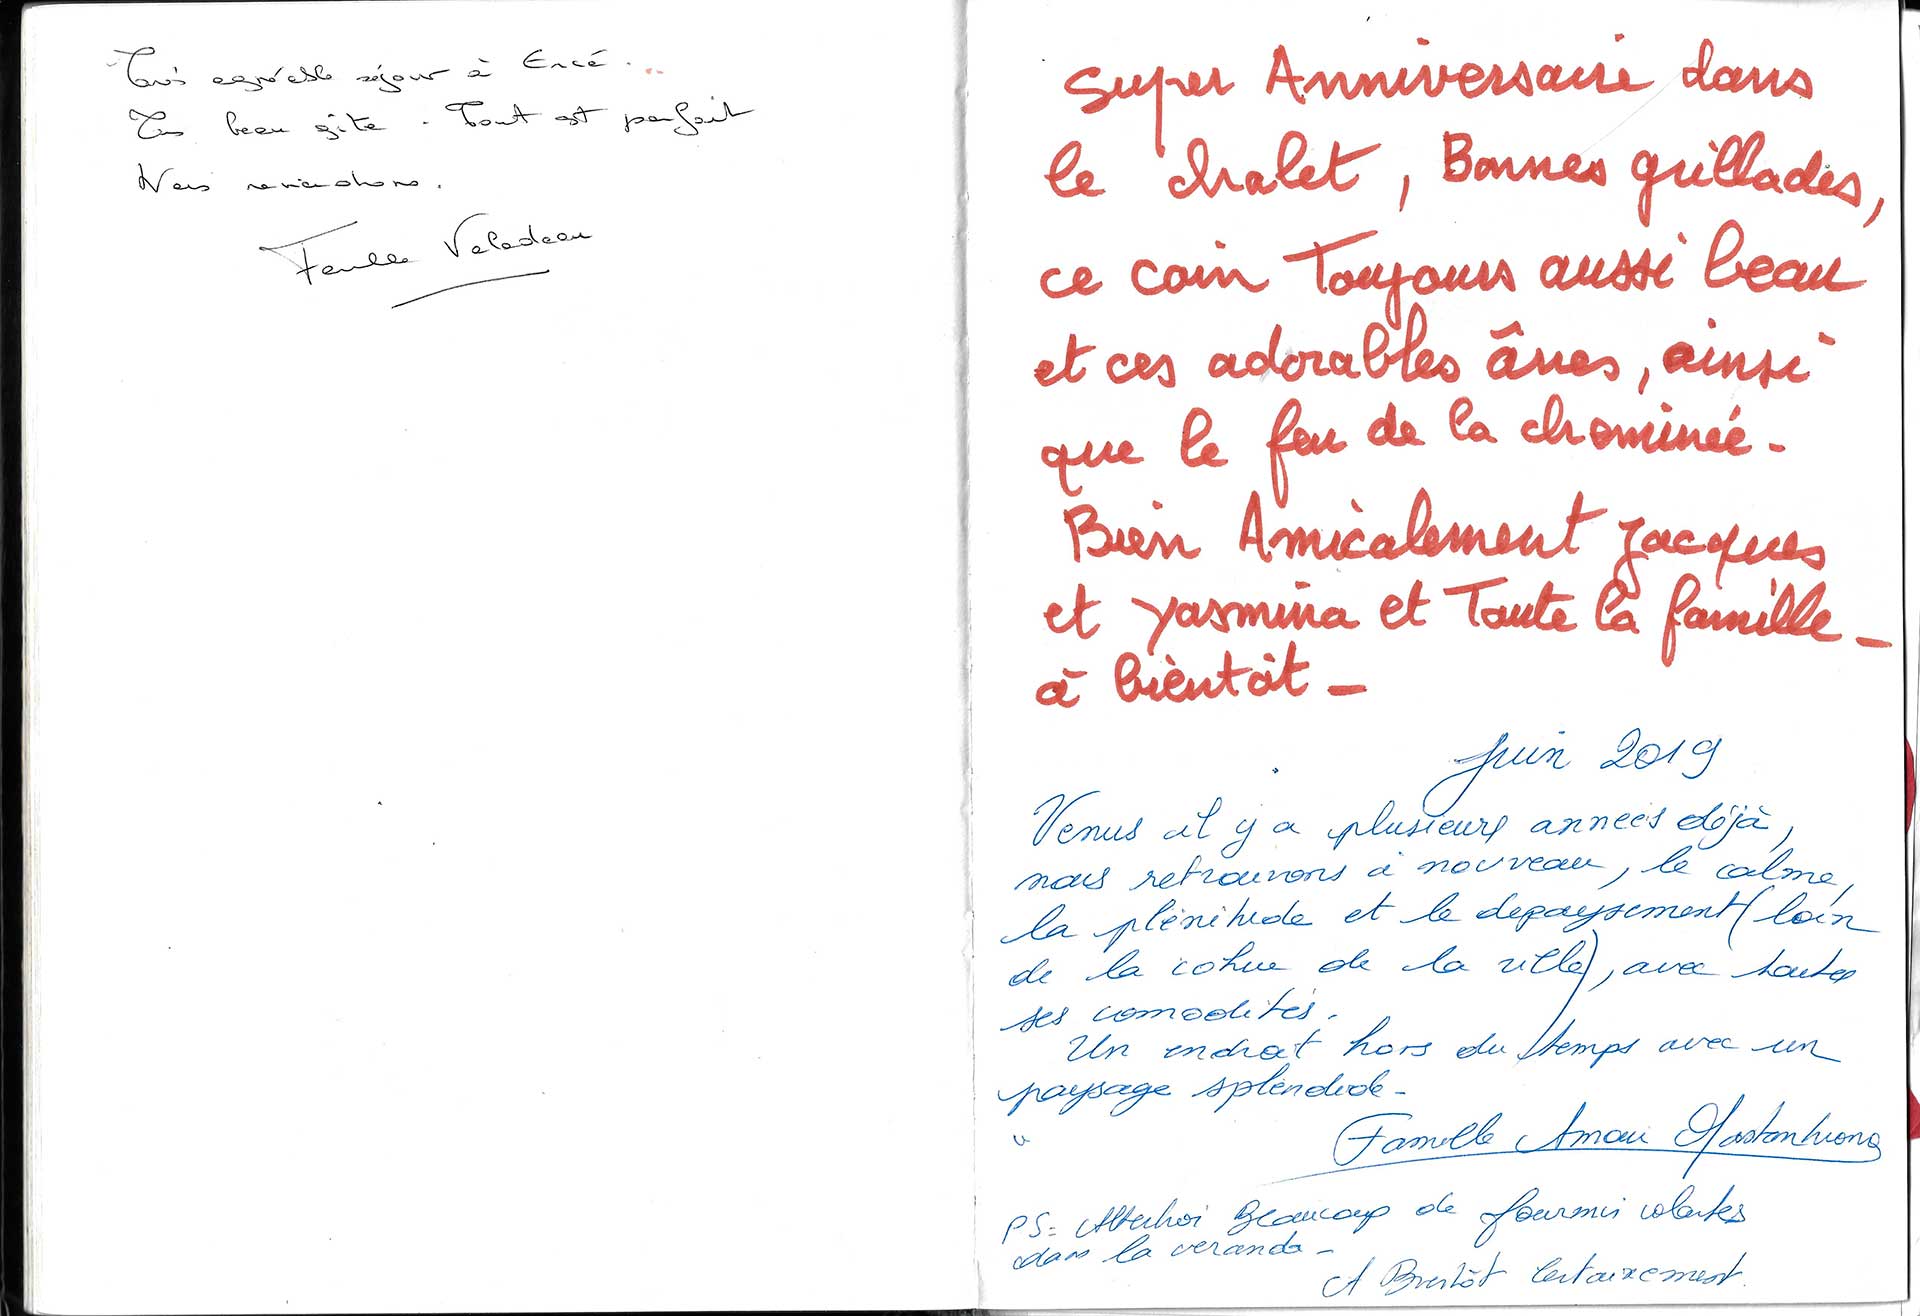 Très agréable séjour à Ercé.
Très beau gîte. Tout est parfait
Nous reviendrons.
Famille Valadeau
Super Anniversaire dans
le chalet, Bonnes grillades,
ce coin Toujours aussi beau
et ces adorables ânes, ainsi
que le feu de la chominée-
Bien Amicalement Jacques
et Yasmina et Toute la famille-
à bientôt-
Juin 2019
Venus il y a plusieurs années déjà,
nous retrouvons à nouveau, le calme,
la plénitude et le depaysement (loin
de la cohue de la ville), avec toutes
ses comodités.
Un endroit hors du temps avec un
paysage splendide-
Famille Amar
PS: Beaucoup de fourmis volantes
dans la veranda-
A Bientôt Certainement.